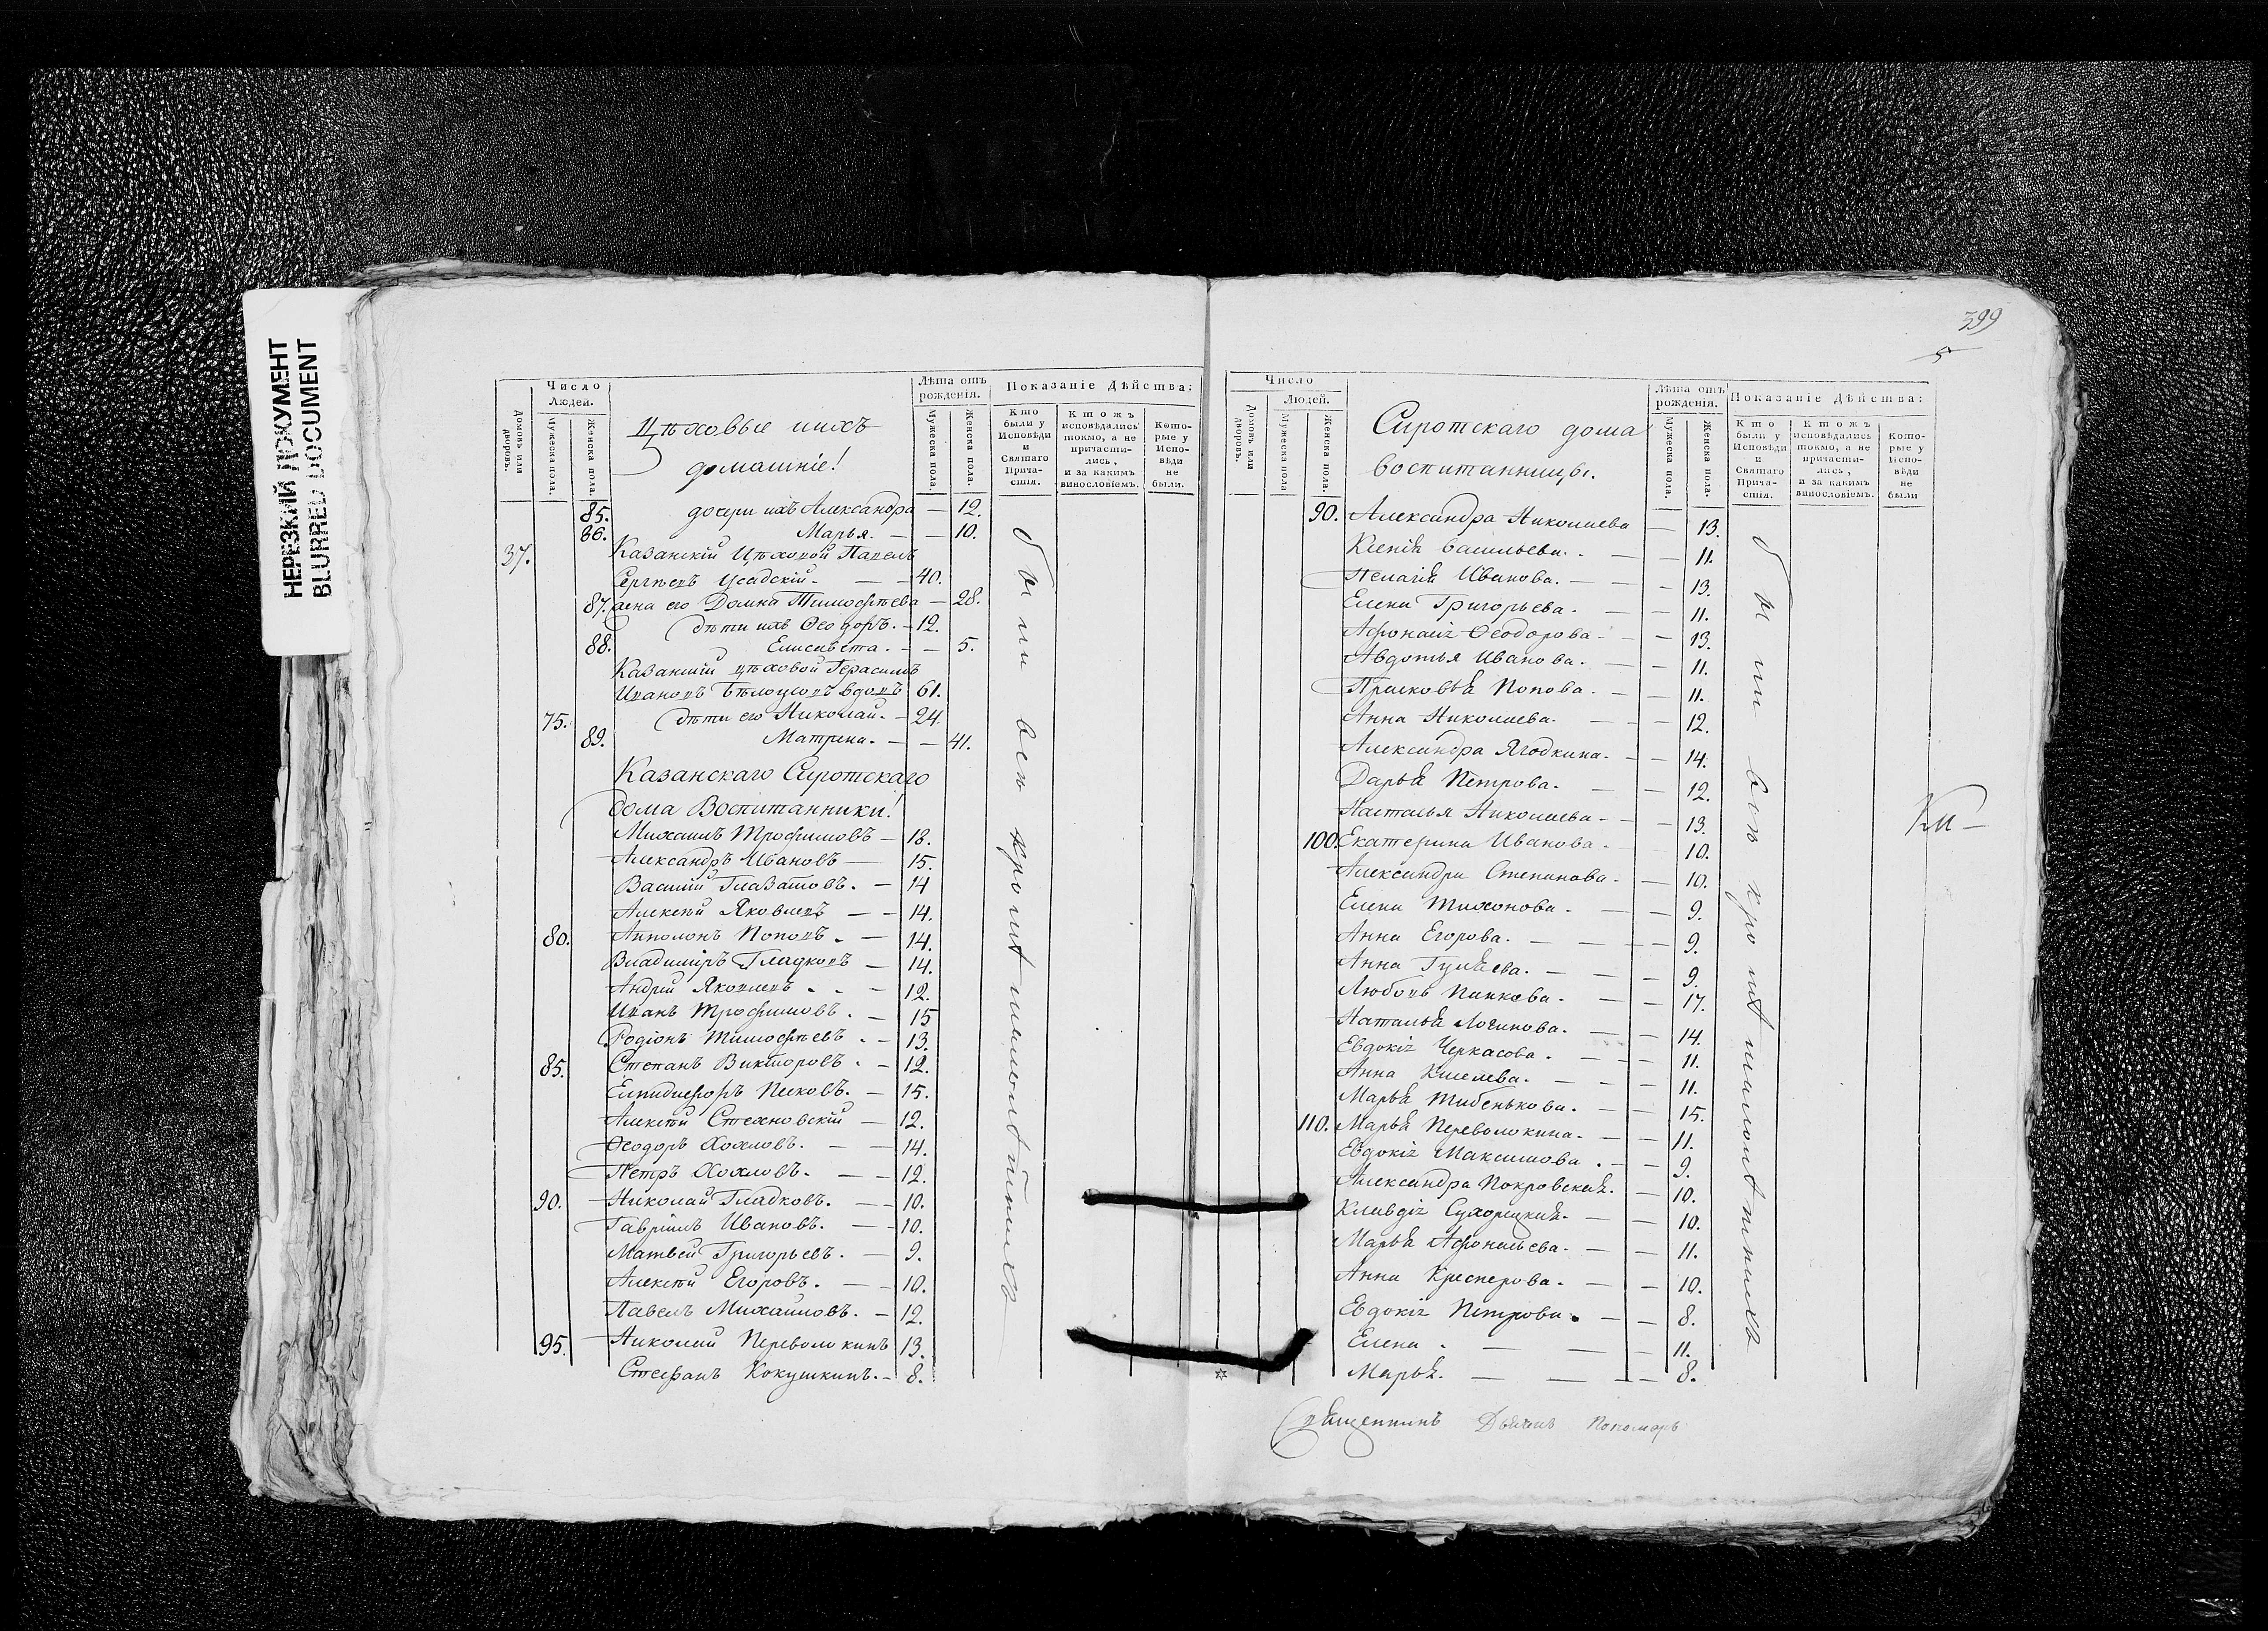 НЕРЕЗКИЙ ДОКУМЕНТ
BLURRED DOCUMENT
Число
Людей.
Домовъ или дворовъ.
Мужеска пола.
Женска пола.
Цѣховые ихъ
домашніе!
Лѣта отъ рожденія.
Мужеска пола.
Женска пола.
Показаніе Дѣйства:
Кто были у Исповѣди и Святаго Прича-стія.
Ктожъ исповѣдались токмо, а не причасти-лись, и за какимъ винословіемъ.
Кото-рые у Испо-вѣди не были.
85. дочери ихъ Александра — 12.
86. Марья. — — 10.
37. Казанскій Цѣховой Павелъ
Сергѣевъ Усадскій. — — 40.
87. жена его Домна Тимофѣева — 28.
дѣти ихъ Ѳеодоръ. — 12.
88. Елисавета. — — 5.
Казанскій цѣховой Герасимъ
Ивановъ Бѣлоусовъ вдовъ 61.
75. дѣти его Николай. — 24.
89. Матрена. — — 41.
Казанскаго Сиротскаго
дома Воспитанники!
Михаилъ Трофимовъ — 18.
Александръ Ивановъ — 15.
Василій Глазатовъ. — 14
Алексѣй Яковлевъ — — 14.
80. Апполонъ Поповъ. — 14.
Владиміръ Гладковъ — 14.
Андрей Яковлевъ . . — 12.
Иванъ Трофимовъ. — 15
Родіонъ Тимофѣевъ . — 13.
85. Степанъ Викторовъ . — 12.
Елпидифоръ Песковъ. — 15.
Алексѣй Стехновскій — 12.
Ѳеодоръ Хохловъ. — — 14.
Петръ Хохловъ. — — 12.
90. Николай Гладковъ. — — 10.
Гавріилъ Ивановъ. — — 10.
Матвей Григорьевъ. — 9.
Алексѣй Егоровъ. — — 10.
Павелъ Михаиловъ. — 12.
95. Николай Переволокинъ 13.
Стефанъ Кокушкинъ. — 8.
были всѣ кромѣ малолѣтнихъ
399
5
Число
Людей.
Домовъ или дворовъ.
Мужеска пола
Женска пола.
Сиротскаго дома
воспитанницы.
Лѣта отъ рожденія.
Мужеска пола.
Женска пола.
Показаніе Дѣйства:
Кто были у Исповѣди и Святаго Прича-стія.
Ктожъ исповѣдались токмо, а не причасти-лись, и за какимъ винословіемъ.
Кото-рые у Испо-вѣди не были
90. Александра Николаева — 13.
Ксенія Васильева. . — — 11.
Пелагія Иванова. — — 13.
Елена Григорьева. — — 11.
Ѳеодорова. — — 13.
Авдотья Иванова. — — 11.
Прасковья Попова. — — 11.
Анна Николаева. — — 12.
Александра Ягодкина. — — 14.
Дарья Петрова. — — 12.
Наталья Николаева — — 13.
100. Екатерина Иванова. — 10.
Александра Степанова. — — 10.
Елена Тихонова. — — 9.
Анна Егорова. — — — 9.
Анна Гуляева. — — — 9.
Любовь Панкова. — — 17.
Наталья Логинова. — — 14.
Евдокія Черкасова. — — — 11.
Анна Киселева. — — — 11.
Марья Тибенькова. — — 15.
110. Марья Переволокина. — — 11.
Евдокія Максимова . — — 9.
Александра Покровская. — 10.
Клавдія — — 10.
Марья Афонасьева. — — 11.
Анна — — 10.
Евдокія Петрова. — — 8.
Елена . — — — 11.
Марья. — — — — 8.
были всѣ кромѣ малолѣтнихъ
Священникъ Дьячекъ Пономарь